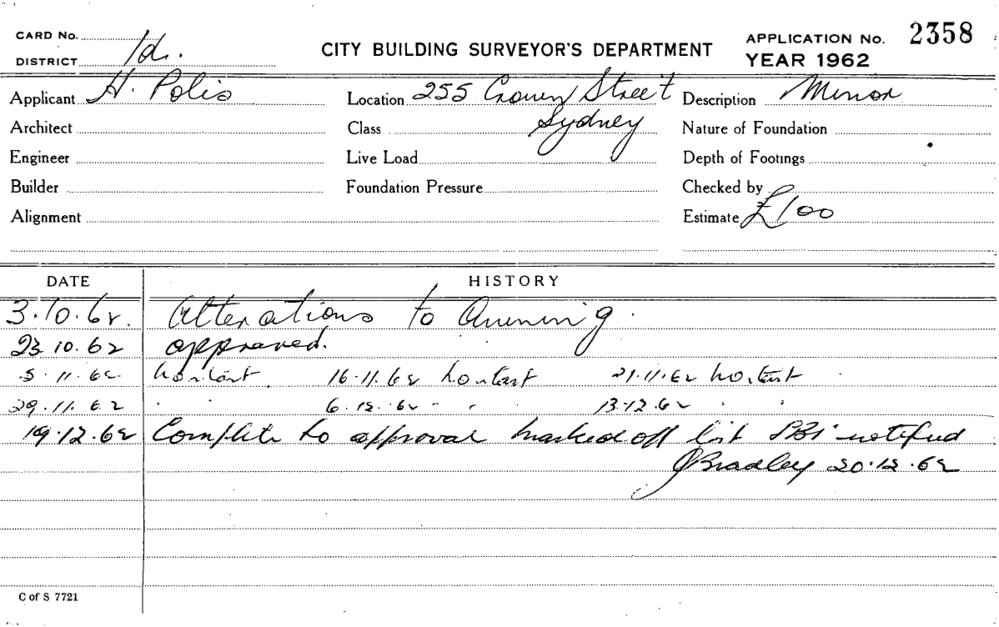 CARD No.
DISTRICT 1d.
CITY BUILDING SURVEYOR'S DEPARTMENT
APPLICATION No. 2358
YEAR 1962
Applicant H. Polis
Location 255 Crown Street
Sydney
Description Minor
Architect
Class
Nature of Foundation
Engineer
Live Load
Depth of Footings
Builder
Foundation Pressure
Checked by
Alignment
Estimate £100
DATE HISTORY
3.10.62. Alterations to Awning.
23.10.62 approved.
5.11.62 16.11.62 21.11.62
29.11.62 " " 6.12.62 " " 13.12.62 " "
19.12.62 Complete to approval marked off list notified
JBradley 20.12.62
C of S 7721